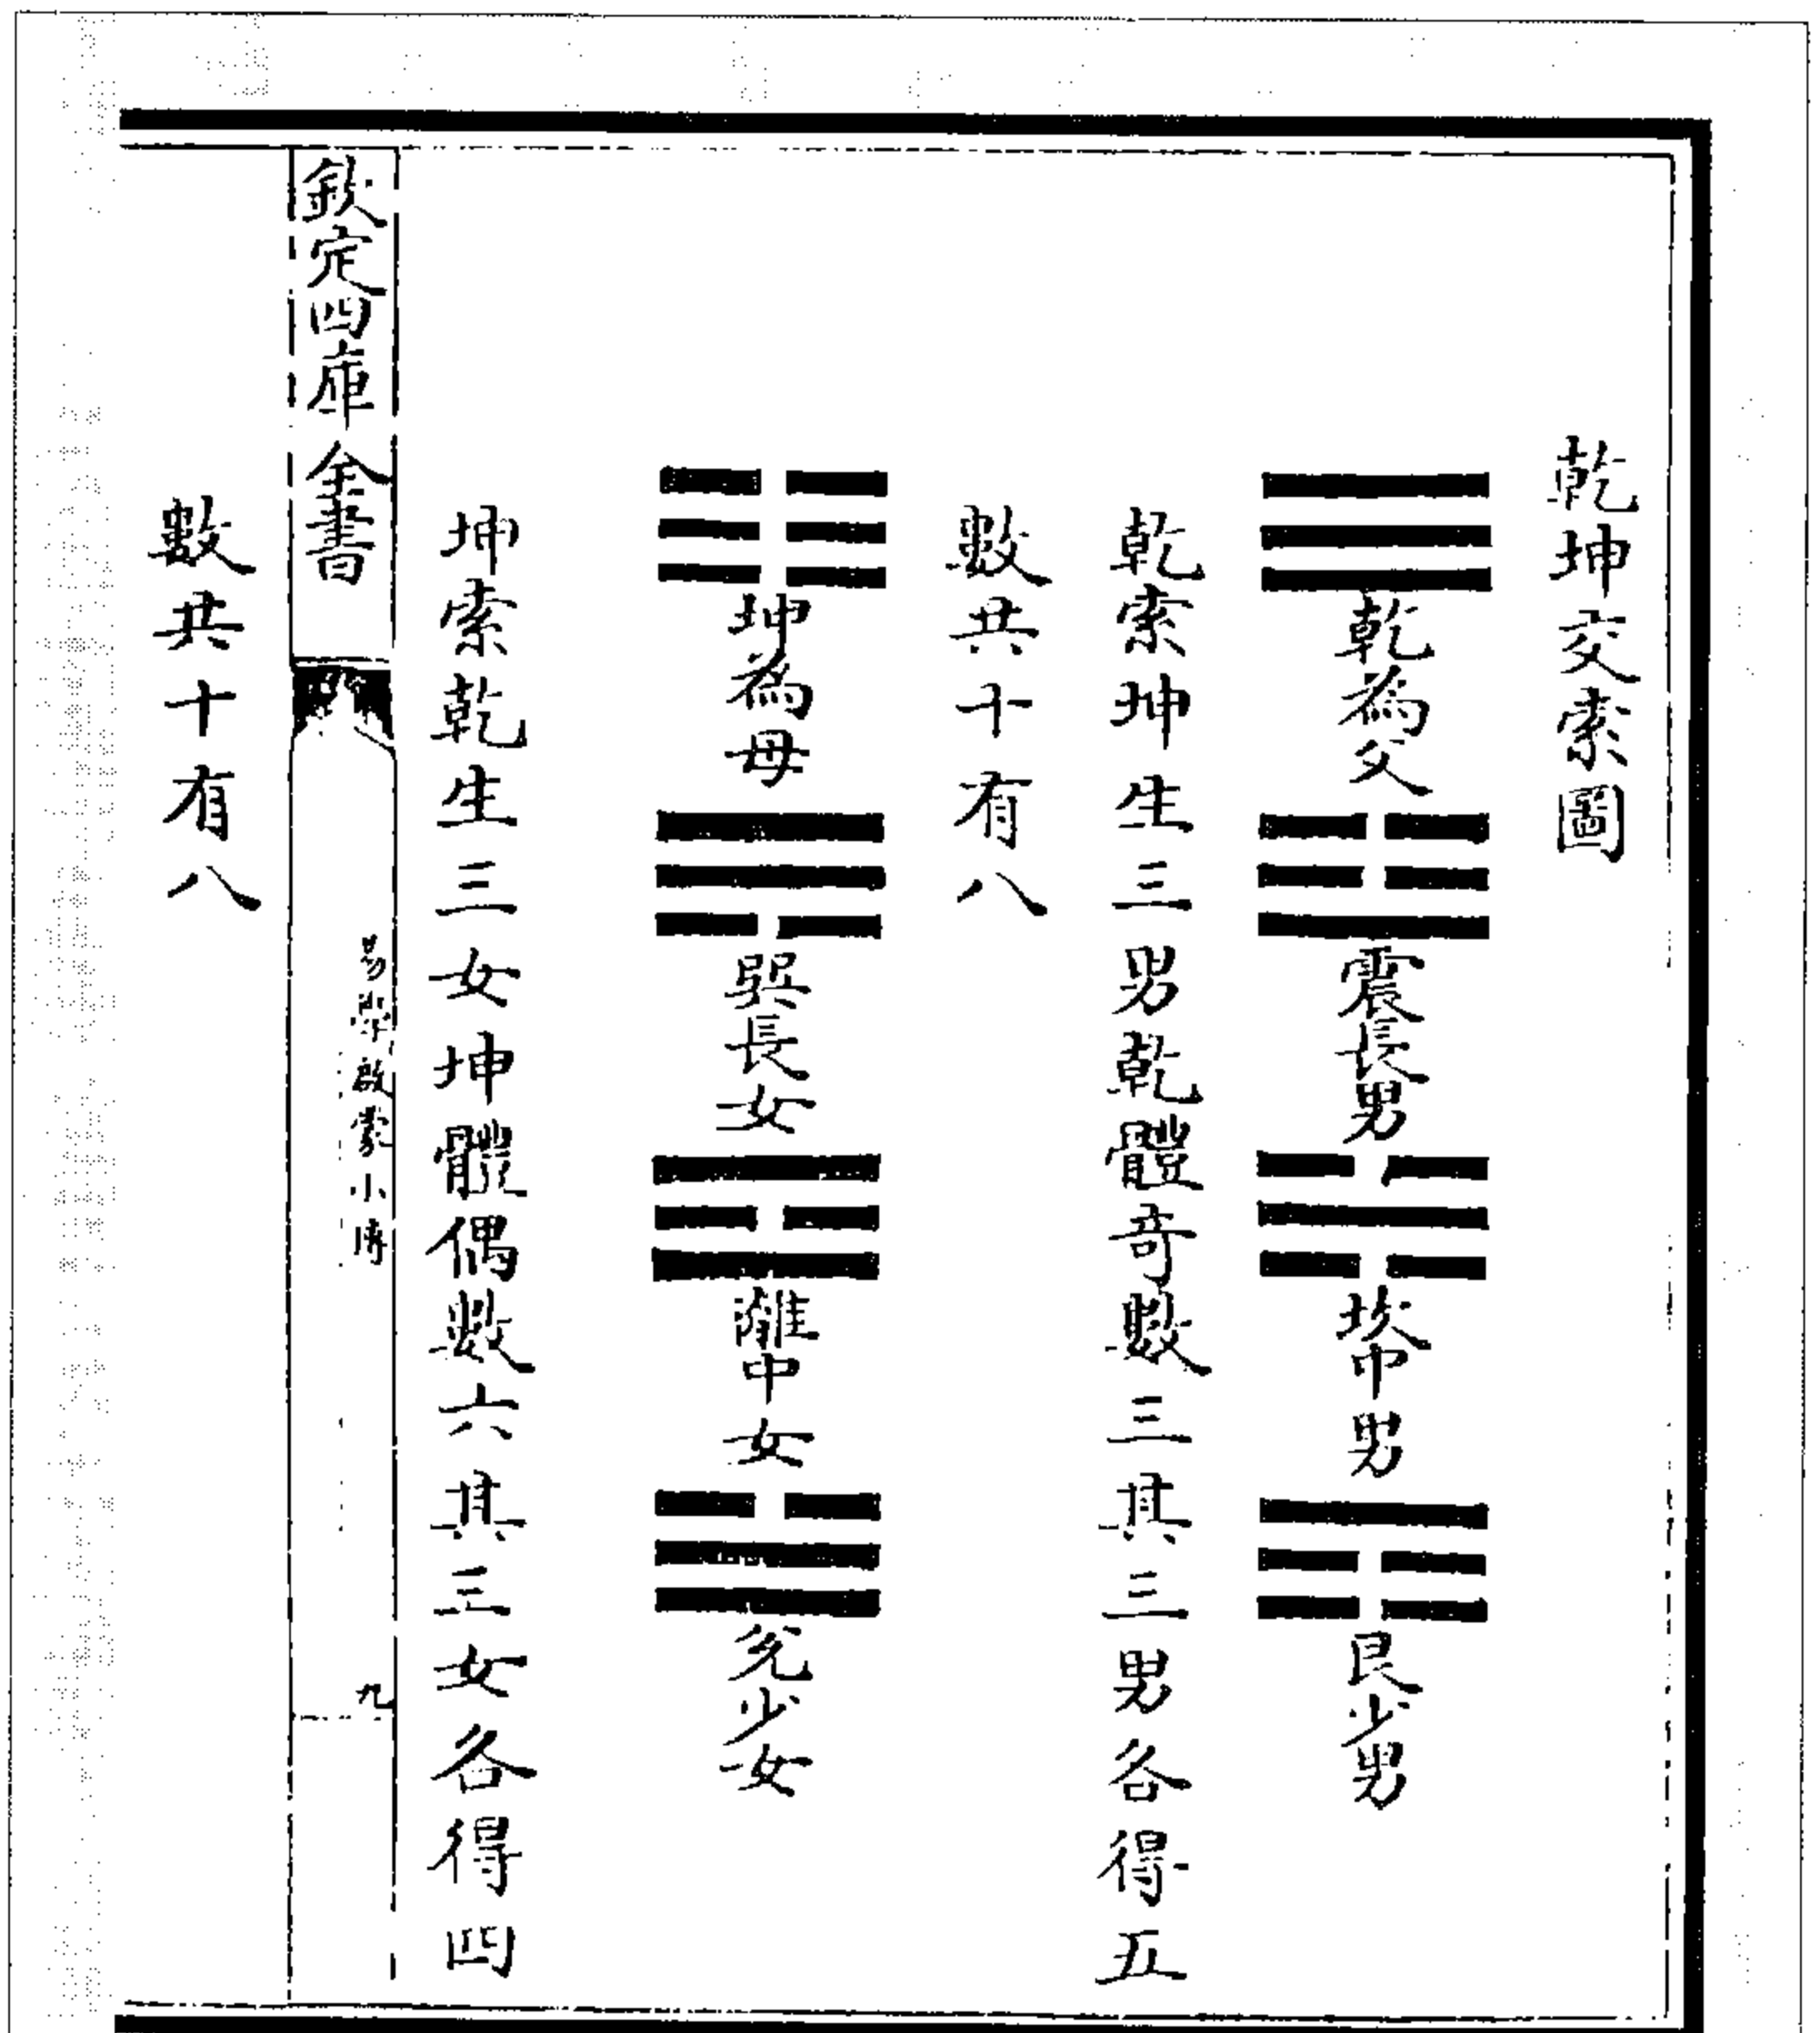 乾坤交索圖
乾為父 震長男 坎中男 艮少男
乾索坤生三男乾體奇數三其三男各得五
數共十有八
坤為母 巽長女 離中女 兌少女
坤索乾生三女坤體偶數六其三女各得四
欽定四庫全書 易學啟蒙小傳 九
數共十有八